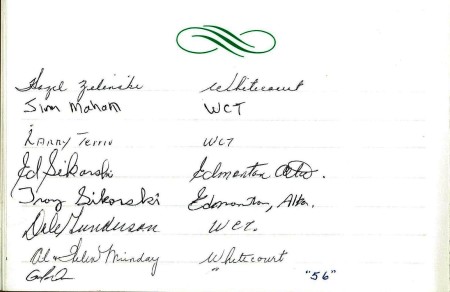 Hazel Zelinski Whitecourt
Jim Maham WCT
Larry Terriv WCT
Ed Sikorski Edmonton Alta.
Troy Sikorski Edmonton, Alta.
Dale Gunderson WCT.
Al & Helen Munday Whitecourt
" "56"